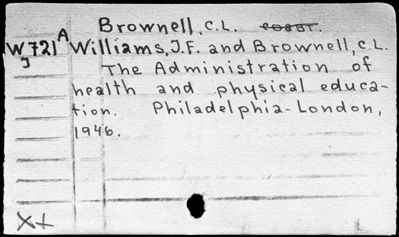 Brownell, C.L.
A
W721 Williams, J.F. and Brownell, C.L.
J
The Administration of
health and physical educa-
tion. Philadelphia-London,
1946.